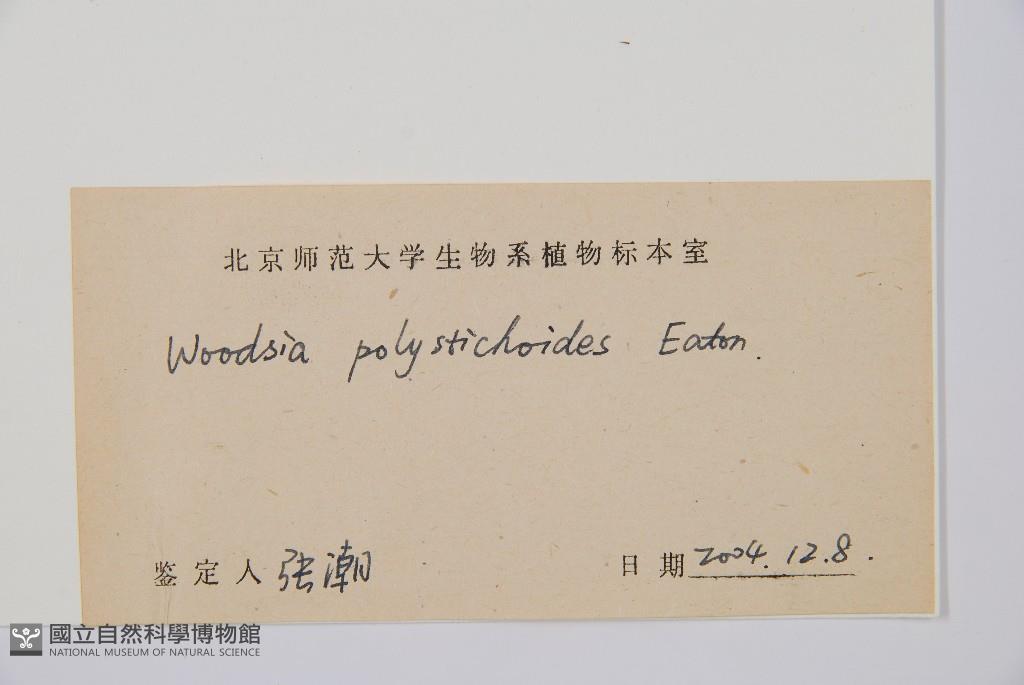 北京师范大学生物系植物标本室
Woodsia polystichoides Eaton.
鉴定人 张潮
日期 2004.12.8.
國立自然科學博物館
NATIONAL MUSEUM OF NATURAL SCIENCE